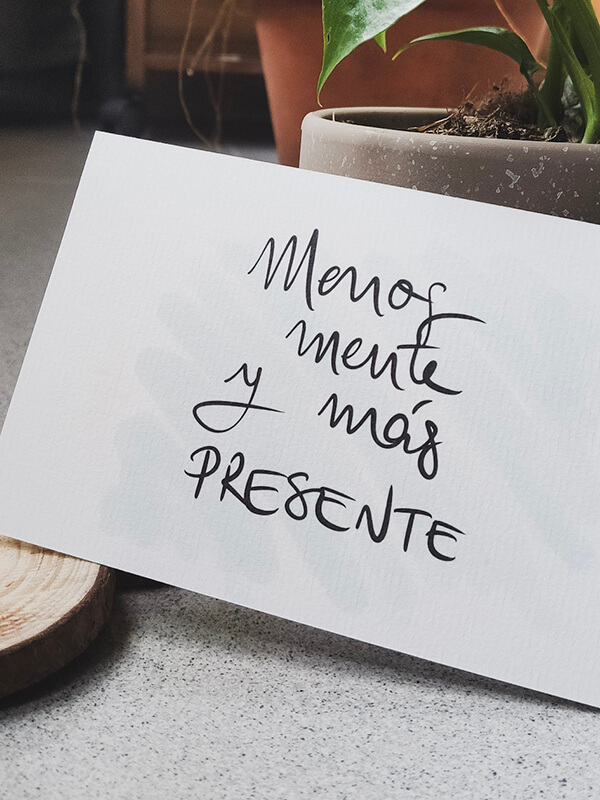 Menos
mente
y más
PRESENTE